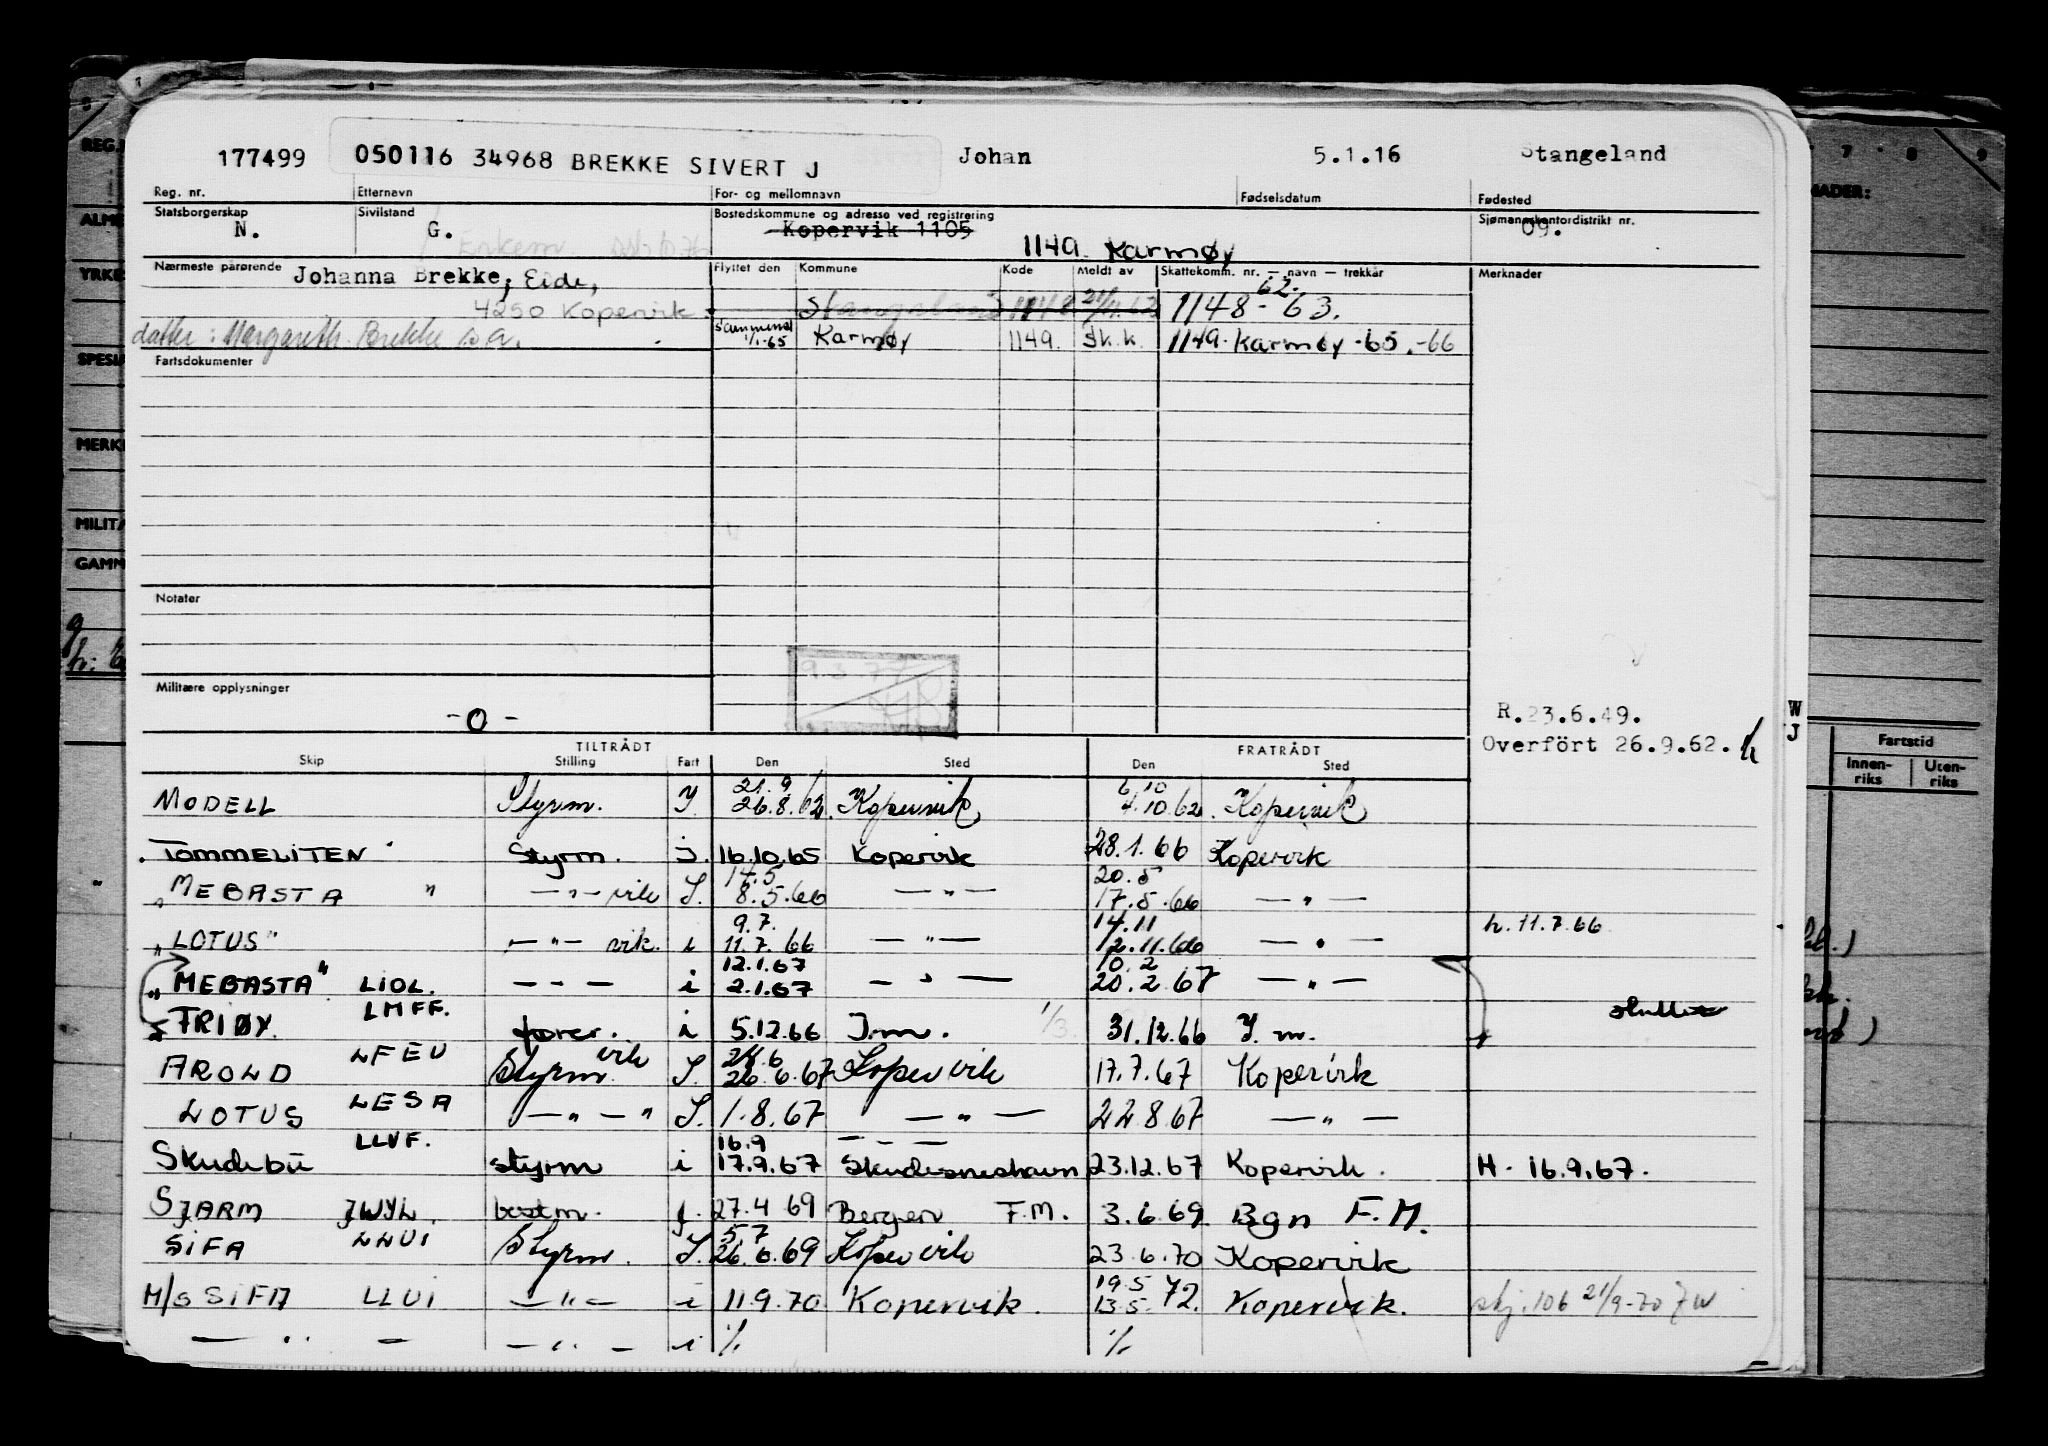 177499 050116 34968 BREKKE SIVERT J Johan 5.1.16 Stangeland
Reg. nr. Etternavn For- og mellomnavn Fødselsdatum Fødested
Statsborgerskap Sivilstand Bostedskommune og adresse ved registrering Sjømannskontordistrikt nr.
N. G. Kopervik 1105 09.
1149. Karmøy
Nærmeste pårørende Johanna Brekke, Eide, Flyttet den Kommune Kode Meldt av Skattekomm. nr. — navn — trekkår Merknader
62.
4250 Kopervik Stangeland 1148 1148 - 63.
datter: Margareth Brekke s.a. 1/1-65 Karmøy 1149. Sk.k. 1149. Karmøy -65.-66
Fartsdokumenter
Notater
9.3.77
Militære opplysninger
-0-
R.23.6.49.
Overført 26.9.62.
TILTRÅDT FRATRÅDT
Skip Stilling Fart Den Sted Den Sted
21.9 6.10
MODELL Styrm. I. 26.8.62. Kopervik 4.10.62. Kopervik
TOMMELITEN Styrm. i. 16.10.65 Kopervik 28.1.66 Kopervik
14.5 20.5
"MEBASTA" —"— vik I. 8.5.66 —"— 17.5.66 —"—
9.7. 14.11
"LOTUS" —"— vik. i 11.7.66 —"— 12.11.66 —"— h. 11.7.66
12.1.67 10.2
"MEBASTA" LIOL. — — — i 2.1.67 —"— 20.2.67 —"—
TRIØY. LMFF. fører. i 5.12.66 I.m. 1/3 31.12.66 I.m.
AROND LFEU Styrm. vik I. 26.6.67 Kopervik 17.7.67 Kopervik
LOTUS LESA —"—" I. 1.8.67 —"— 22.8.67 —"—
16.9
Skudebu LLVF. styrm i 17.9.67 Skudesneshavn 23.12.67 Kopervik. H. 16.9.67.
SJARM JWYL. bastm. 27.4 69 Bergen F.M. 3.6.69. Bgn F.M.
5.7
SIFA LLUI Styrm. I. 26.6.69 Kopervik 23.6.70 Kopervik
19.5
M/S SIFA LLUI —"— i 11.9.70 Kopervik. 13.5.72. Kopervik. skj. 106 21/9-70 JW
— " — — " — i 1/1 1/1
REG.
ALME
YRKE
SPESIA
MERK
MILITÆ
GAMM
W
J
Fartstid
Innen-
riks
Uten-
riks